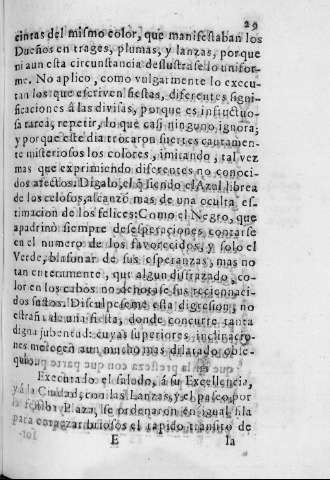 29
cintas del mismo color, que manifestaban los
Dueños en trages, plumas, y lanzas, porque
ni aun esta circunstancia deslustrase lo unifor-
me. No aplico, como vulgarmente lo execu-
tan los que escriven fiestas, diferentes signi-
ficaciones á las divisas, porque es infructuo-
sa tarea, repetir, lo que casi ninguno ignora;
y porque este dia trocaron suertes cautamen-
te misteriosos los colores, imitando, tal vez
mas que exprimiendo diferentes no conoci-
dos afectos. Digalo, el siendo el Azul librea
de los celosos, alcanzó mas de una oculta es-
timacion de los felices: Como el Negro, que
apadrinò siempre desesperaciones contarse
en el numero de los favorecidos, y solo el
Verde, blasonar de sus esperanzas, mas no
tan enteramente, que algun disfrazado, co-
lor en los cabos no denotase sus
sustos. Disculpeseme esta digresion, no
estraña de una fiesta, donde concurre tanta
digna jubentud: cuyas superiores inclinacio-
nes merecen aun mucho mas dilatado obse-
quio.
Executado el saludo, á su Excellencia,
y á la Ciudad, con las Lanzas, y el paseo por
Plaza, se ordenaron en igual fila
para comenzar briosos el rapido transito de
E la